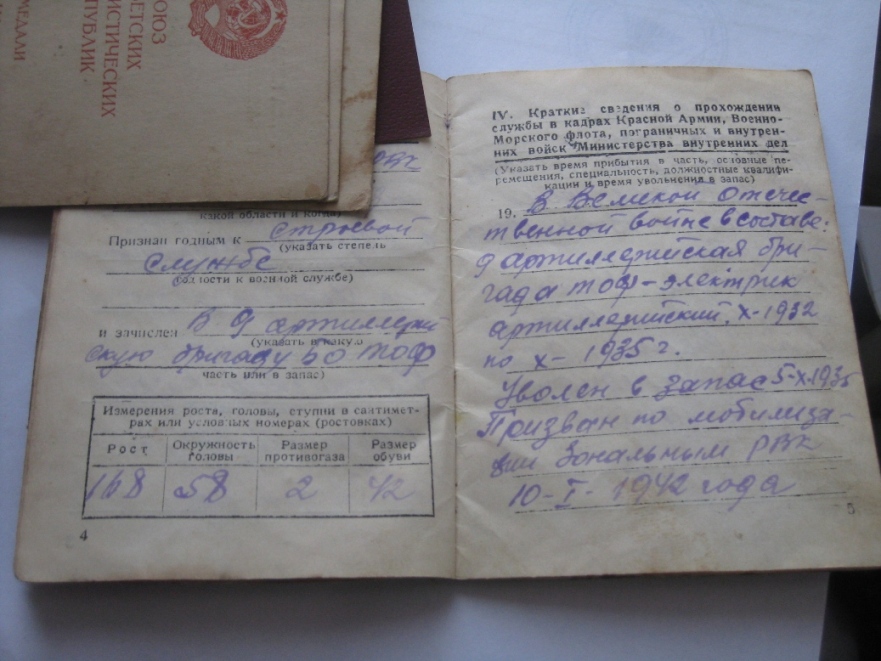 ОЮЗ
ЕТСКИХ
ИСТИЧЕСКИХ
ПУБЛИК
МЕДАЛИ
РВК
какой области и когда)
Признан годным к строевой
(указать степень
службе
годности к военной службе)
и зачислен В 9 артиллерий
(указать в какую
скую бригаду БО тоф
часть или в запас)
Измерения роста, головы, ступни в сантимет-
рах или условных номерах (ростовках)
Рост Окружность головы Размер противогаза Размер обуви
168 58 2 42
4
IV. Краткие сведения о прохождении
службы в кадрах Красной Армии, Военно-
Морского флота, пограничных и внутрен-
них войск Министерства внутренних дел
(Указать время прибытия в часть, основные пе-
ремещения, специальность, должностные квалифи-
кации и время увольнения в запас)
19. В Великой Отече-
ственной войне в составе:
9 артиллерийская бри-
гада тоф-электрик
артиллерийский. X-1932
по X-1935 г.
Уволен в запас 5-X-1935
Призван по мобилиза-
ции Зональным РВК
10-I-1942 года
5